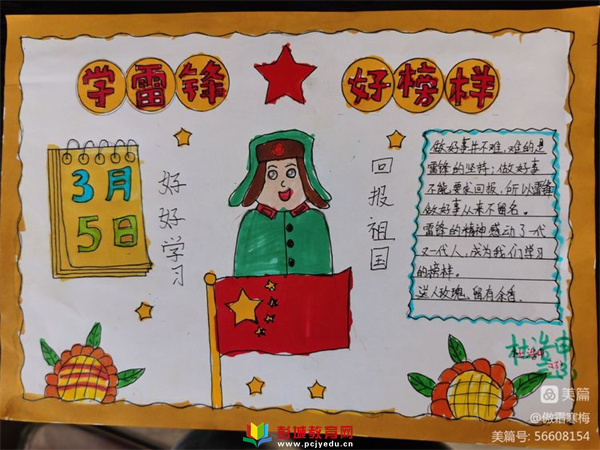 学雷锋
好榜样
3月
5日
好好学习
回报祖国
做好事并不难,难的是
雷锋的坚持;做好事
不能要求回报,所以雷锋
做好事从来不留名。
雷锋的精神感动了一代
又一代人,成为我们学习
的榜样。
送人玫瑰,留有余香。
美篇
@傲霜寒梅
美篇号: 56608154
彭城教育网
www.pcjyedu.cn